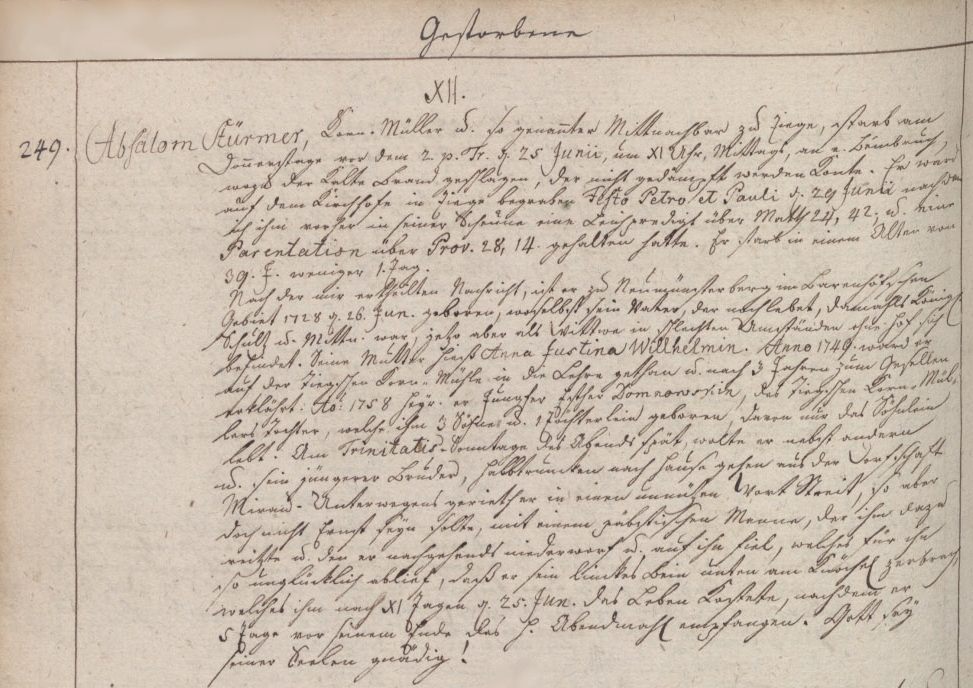 Gestorbene
XII.
249. Absalom Stürmer, Korn-Müller u. so genannter Mittnachbar zu Ziege, starb am
Donnerstage vor dem 2. p. Tr. d. 25 Junii, um XI Uhr, Mittags, an e. Beinbruch,
wozu der Kalte Brand geschlagen, der nicht gedämpft werden konte. Er ward
auf dem Kirchhofe in Ziege begraben Festo Petro et Pauli d. 29 Junii nachdem
ich ihm vorher in seiner Scheune eine Leichpredigt über Matth 24, 42. u. eine
Parentation über Prov. 28, 14. gehalten hatte. Er starb in einem Alter von
39. J. weniger 1. Tag.
Nach der mir ertheilten Nachricht, ist er zu Neumünsterberg im Barenhöfschen
Gebiet 1728 d. 26. Jun. gebohren, woselbst sein Vater, der noch lebet, damahls
Schultz u. Mittn. war, jetzo aber als Wittwer in schlechten Umständen ohne Hof sich
befindet. Seine Mutter hiess Anna Justina Willhelmin. Anno 1749. ward er
auf der Ziegschen Korn-Mühle in die Lehre gethan u. nach 3 Jahren zum Gesellen
erklährt. Ao: 1758 heyr. er Jungfer Esther Domnowskin, des Ziegschen Korn-Mül-
lers Tochter, welche ihm 3 Söhne u. 1 Töchterlein geboren, davon nur das Söhnlein
lebt. Am Trinitatis-Sonntage des Abends spät, wolte er nebst andern
u. sein jüngerer Bruder, halbtruncken nach Hause gehen aus der Dorfschaft
Mirau. Unterwegens gerieth er in einen unnützen Wort Streit, so aber
doch nicht Ernst seyn solte, mit einem päbstischen Manne, der ihn dazu
reitzte u. den er nachgehends niederworf u. auf ihn fiel, welches für ihn
so unglücklich ablief, daß er sein linckes Bein unten am Knöchel zerbrach,
welches ihm nach XI Tagen d. 25. Jun. das Leben kostete, nachdem er
5 Tage vor seinem Ende das H. Abendmahl empfangen. Gott sey
seiner Seelen gnädig!